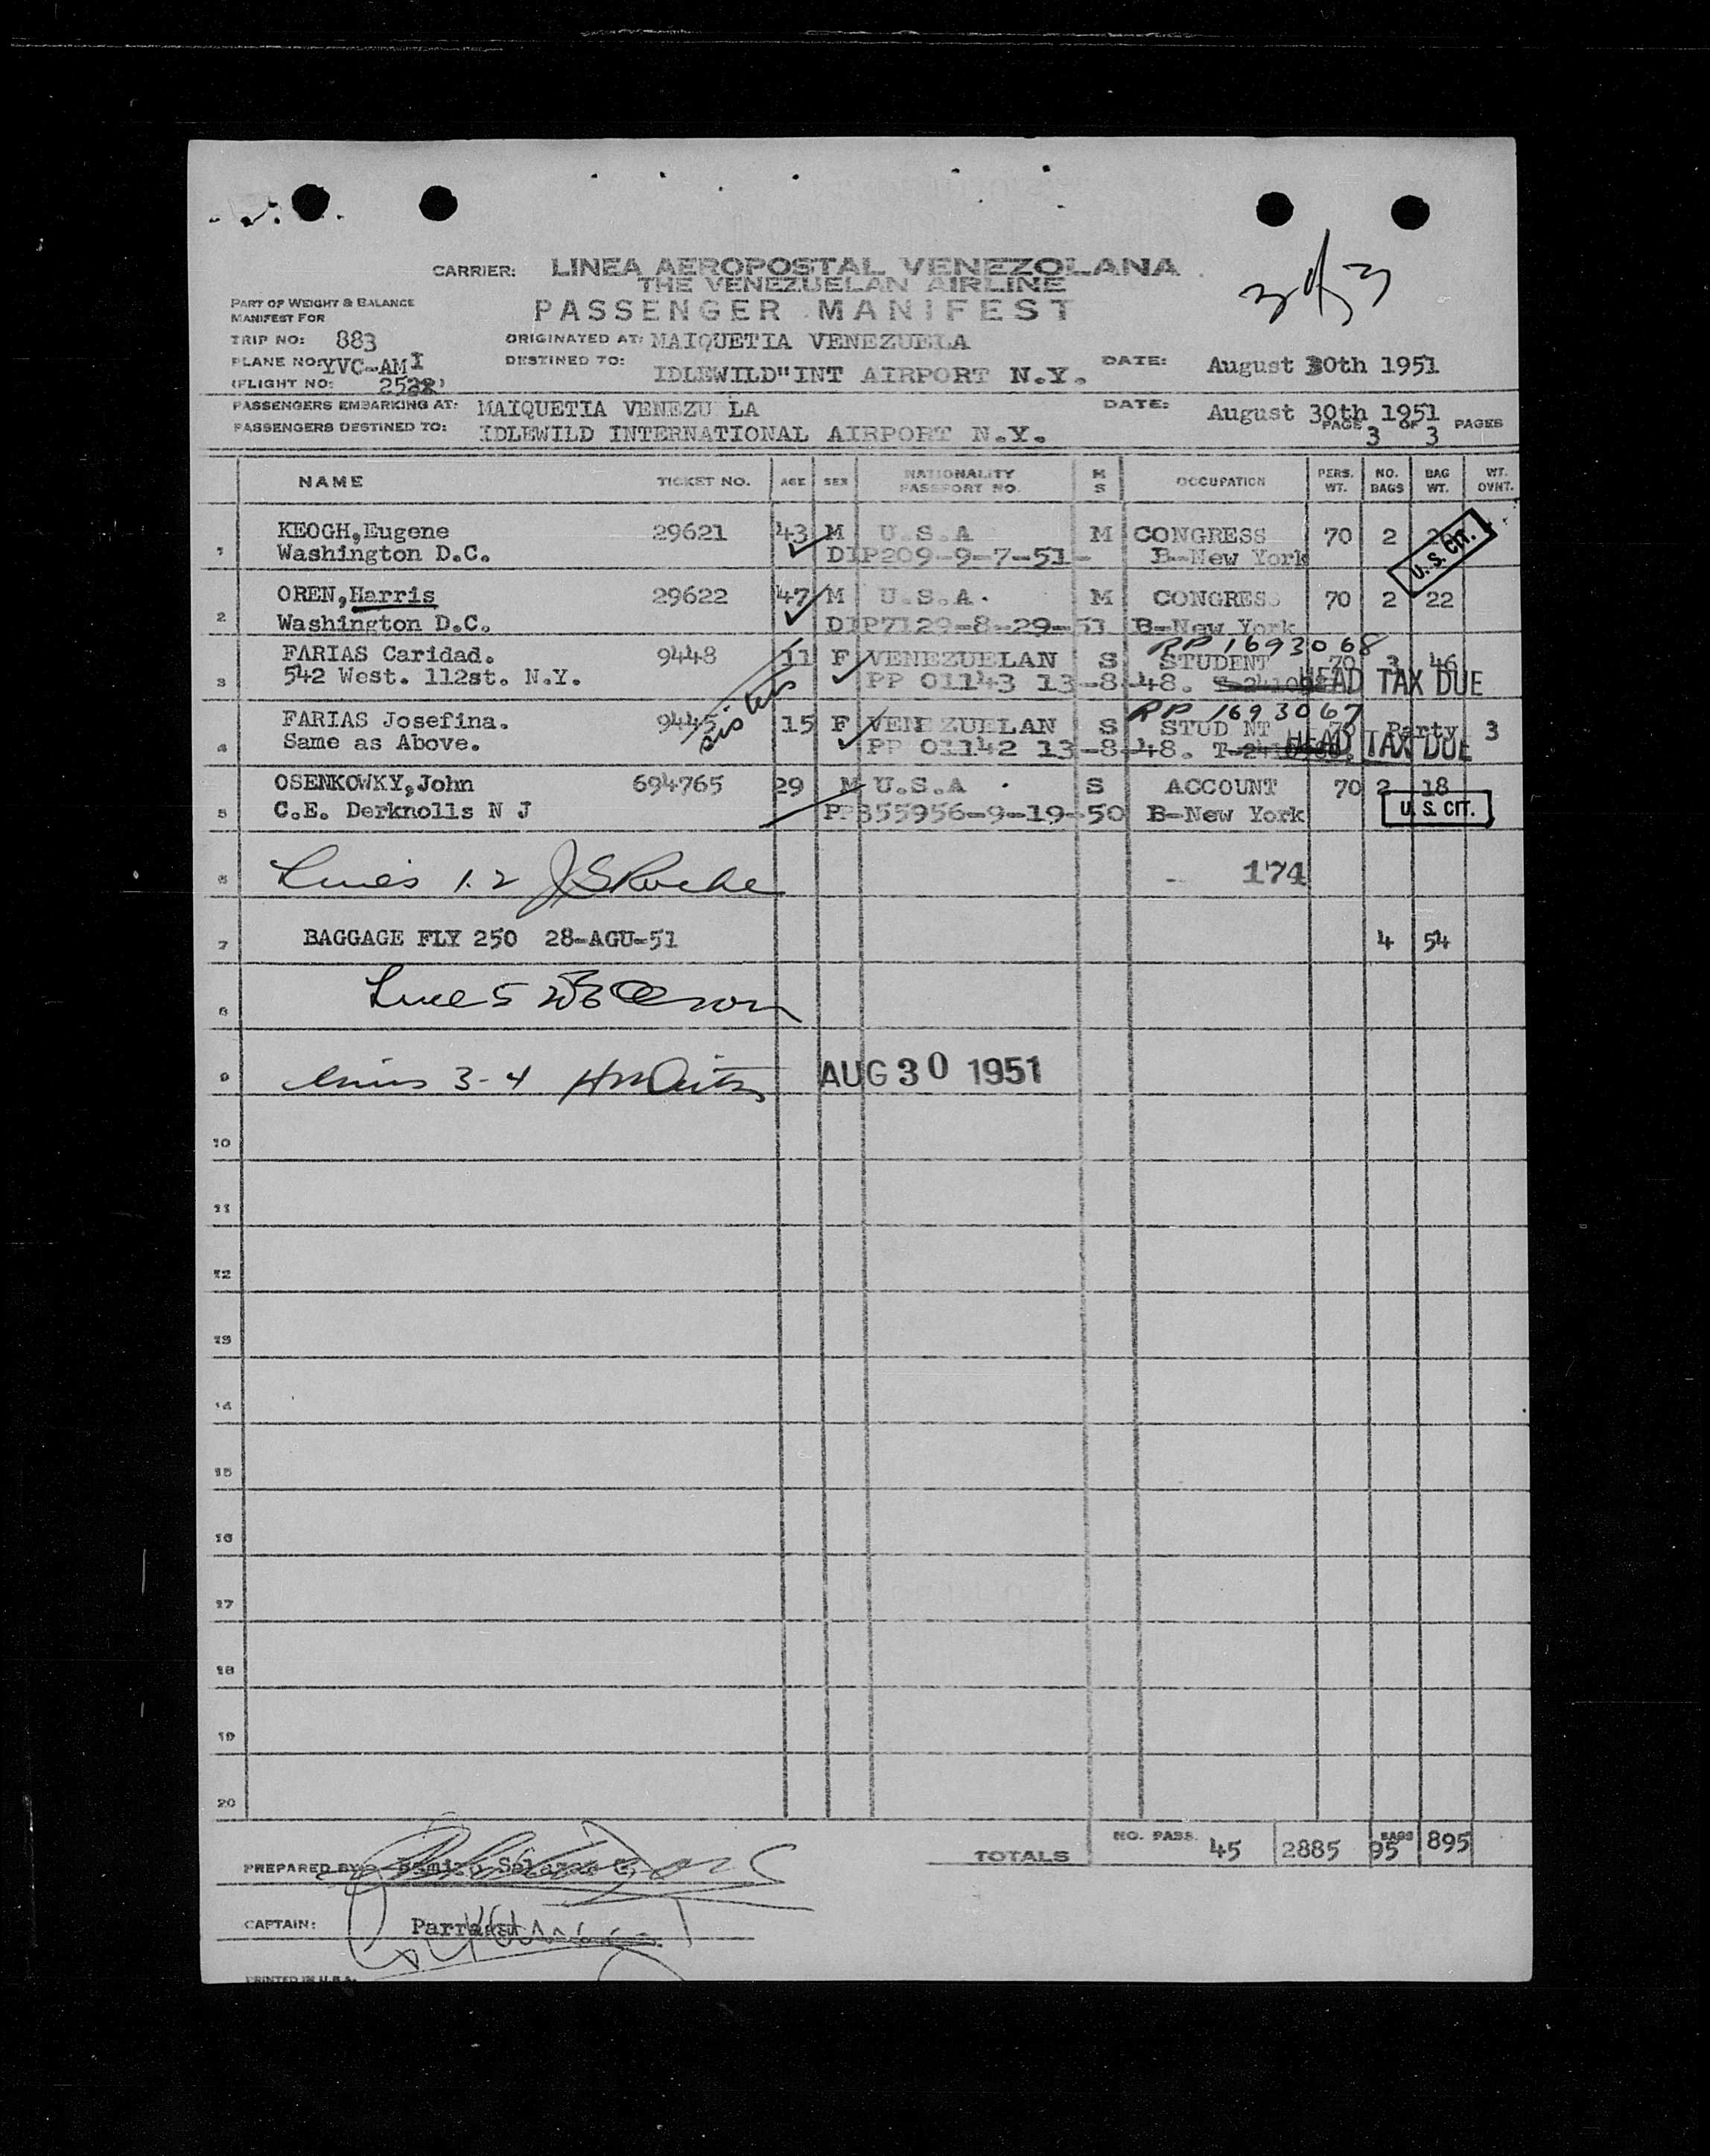 3/3
CARRIER: LINEA AEROPOSTAL VENEZOLANA
THE VENEZUELAN AIRLINE
PART OF WEIGHT & BALANCE
MANIFEST FOR
PASSENGER MANIFEST
TRIP NO: 883 ORIGINATED AT: MAIQUETIA VENEZUELA
PLANE NO: YVC-AMI DESTINED TO: IDLEWILD"INT AIRPORT N.Y. DATE: August 30th 1951
(FLIGHT NO:
PASSENGERS EMBARKING AT: MAIQUETIA VENEZU LA DATE: August 30th 1951
PASSENGERS DESTINED TO: IDLEWILD INTERNATIONAL AIRPORT N.Y. PAGE 3 OF 3 PAGES
NAME TICKET NO. AGE SEX NATIONALITY PASSPORT NO. M S OCCUPATION PERS. WT. NO. BAGS BAG WT. WT. OVNT.
1 KEOGH,Eugene 29621 43 M U.S.A M CONGRESS 70 2 U. S. CIT.
Washington D.C. DIP209-9-7-51- B-New York
2 OREN,Harris 29622 47 M U.S.A. M CONGRESS 70 2 22
Washington D.C. DIP7129-8-29-51 B-New York
RP 1693068
3 FARIAS Caridad. 9448 11 F VENEZUELAN S STUDENT 70 3 46
542 West. 112st. N.Y. PP 01143 13-8-48. HEAD TAX DUE
sisters
RP 1693067
4 FARIAS Josefina. 9445 15 F VEN ZUELAN S STUD NT 70 Party 3
Same as Above. PP 01142 13-8-48. HEAD TAX DUE
5 OSENKOWKY,John 694765 29 M U.S.A . S ACCOUNT 70 2 18
C.E. Derknolls N J PP355956-9-19-50 B-New York U. S. CIT.
6 Lines 1.2 JSRoche 174
7 BAGGAGE FLY 250 28-AGU-51 4 54
8 Line 5
9 Lines 3-4 AUG 30 1951
10
11
12
13
14
15
16
17
18
19
20
TOTALS NO. PASS. 45 2885 95 BAGS 895
PREPARED BY: Ramiro Salazar
CAPTAIN:
PRINTED IN U.S.A.